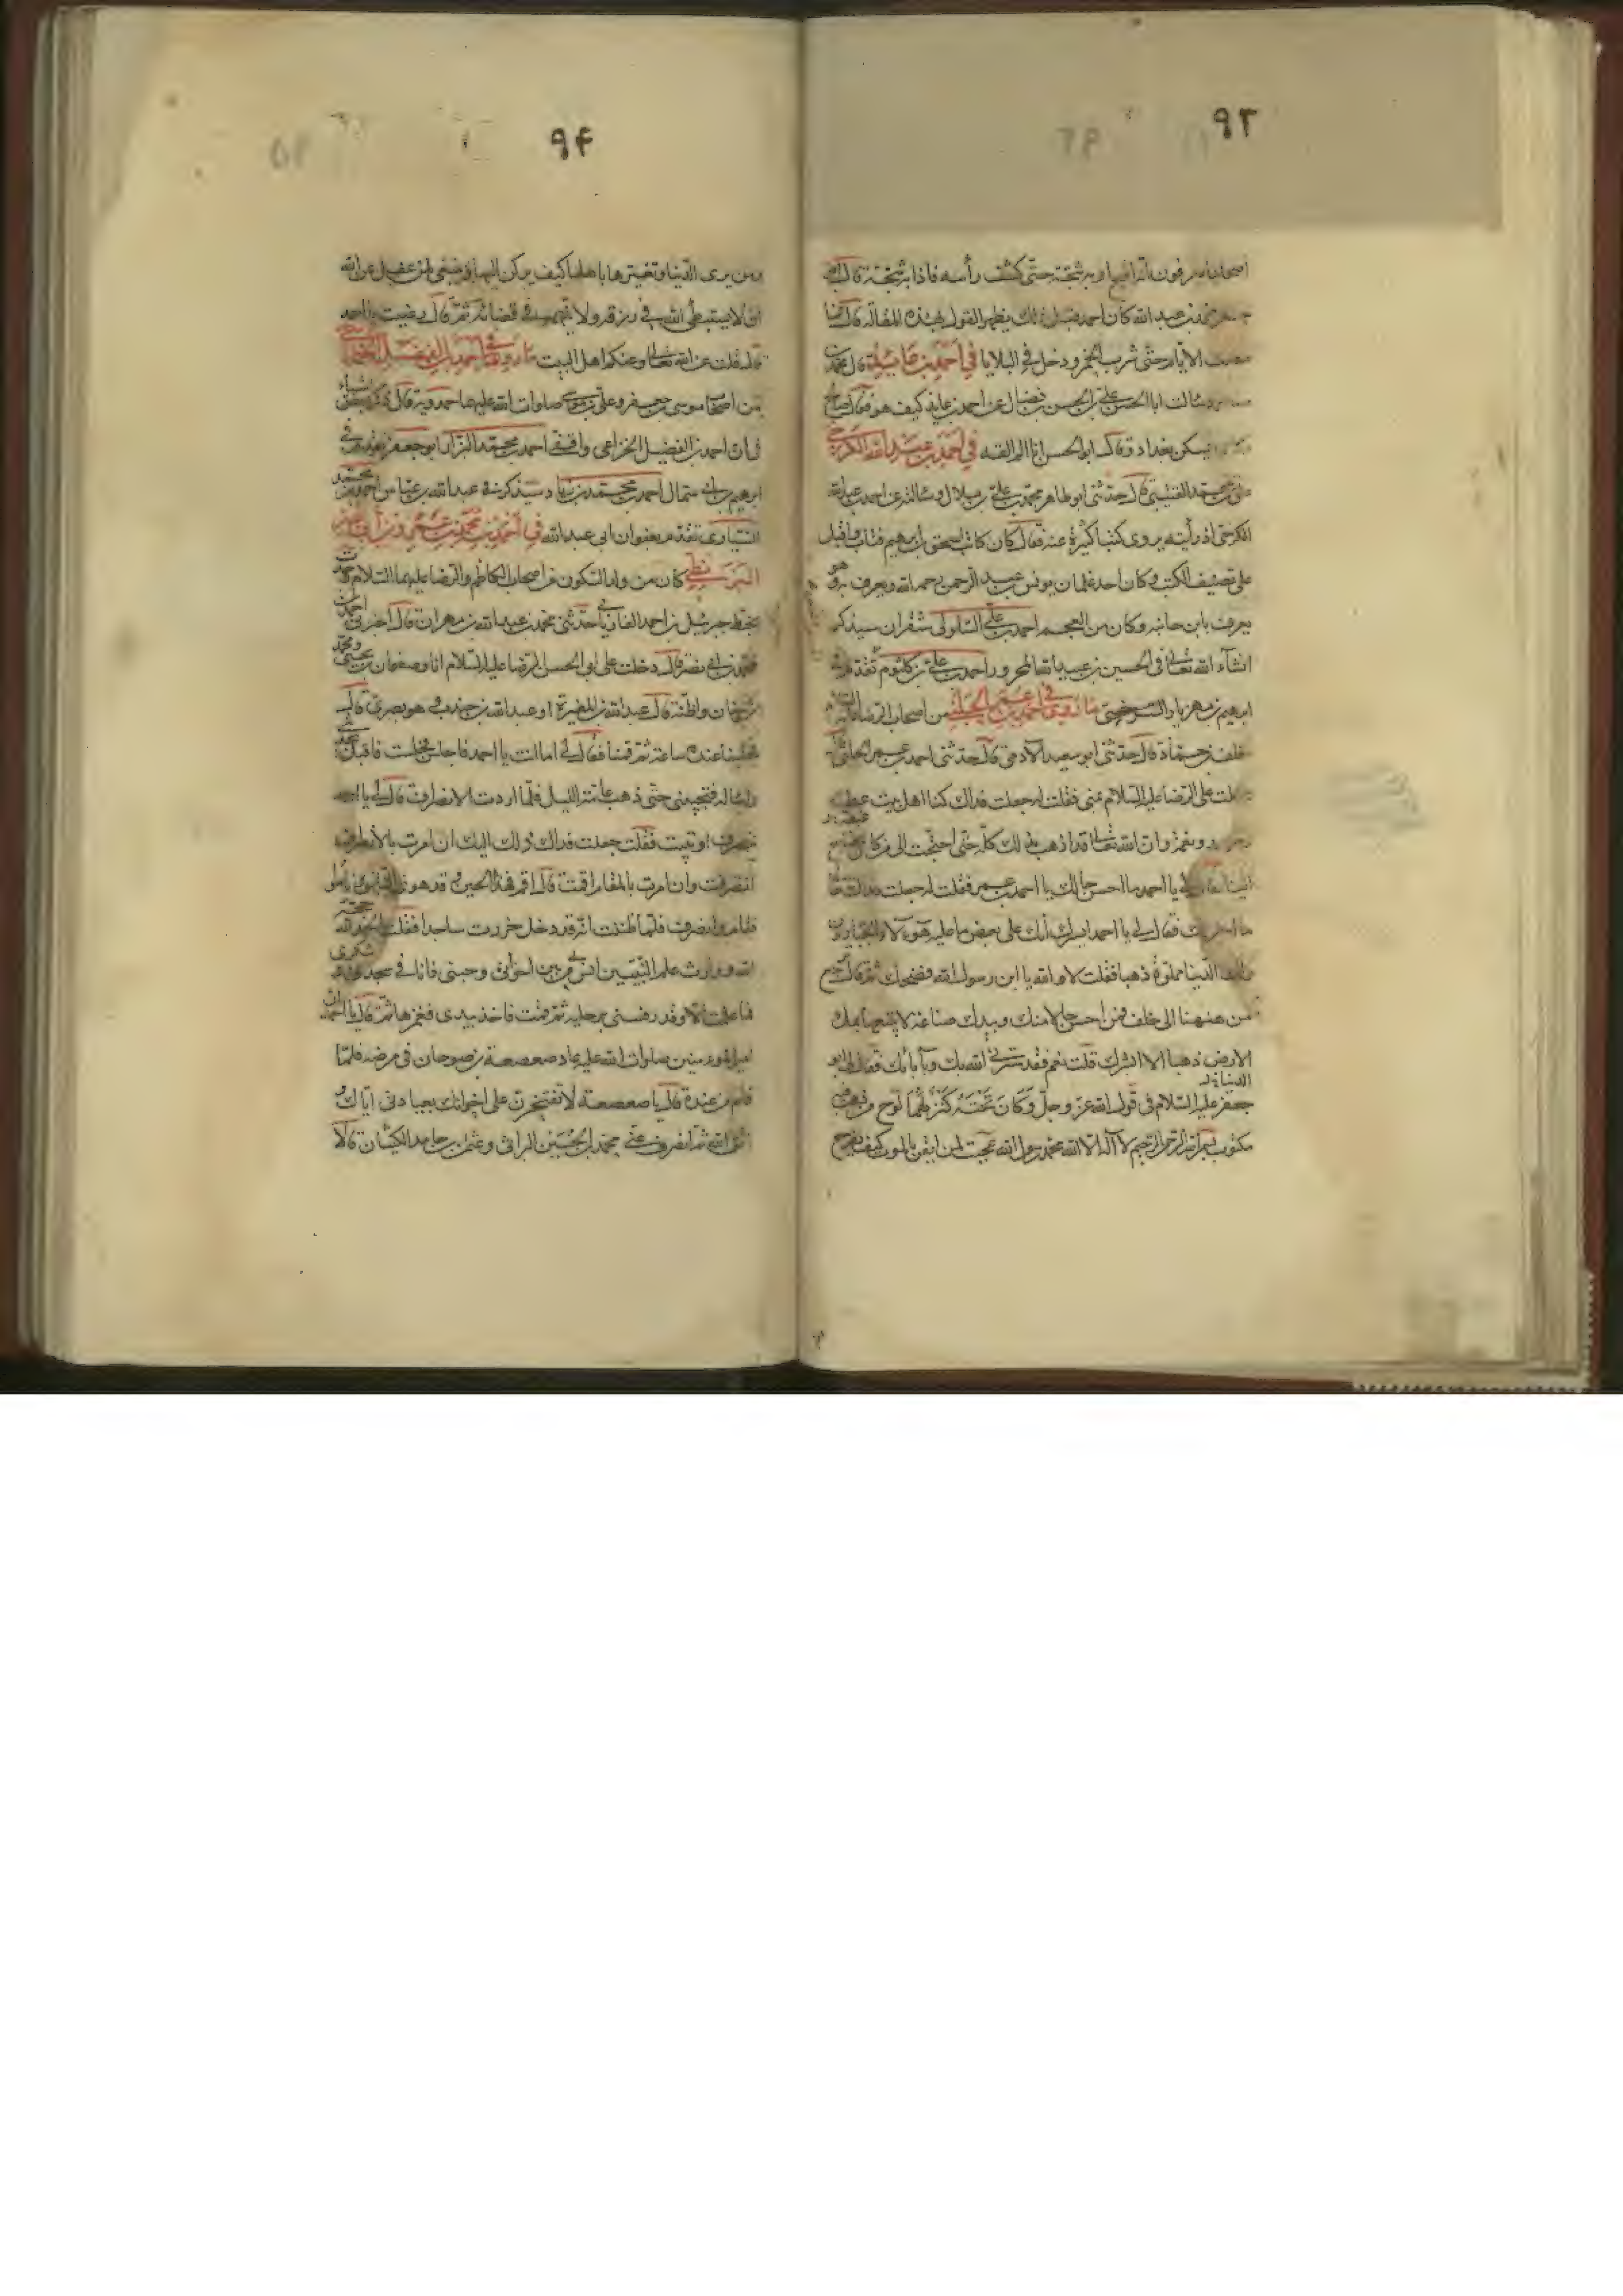 ٩٣
اصحابنا يعرفون به شجة حتى كشف رأسه فاذا به شجة قال
جعفر محمد بن عبد الله كان احمد قبل ذلك يظهر القول بهذه المقالة قال
الايام حتى شرب الخمر ودخل فى البلايا فى احمد بن عايذ قال محمد بن
سالت ابا الحسن على بن الحسن بن فضال عن احمد بن عايذ كيف هو فقال صالح
يسكن بغداد وقال ابو الحسن انا لم القه فى احمد بن عبد الله الكرخى
على بن محمد القتيبى قال حدثنى ابو طاهر محمد بن على بن بلال وسالته عن احمد بن عبد الله
الكرخى اذ رأيته يروى كتبا كثيرة عنه فقال كان كاتب اسحق بن ابرهيم فتاب واقبل
على تصنيف الكتب وكان احد غلمان يونس بن عبد الرحمن رحمه الله ويعرف به وهو
يعرف بابن خانبه وكان من العجم احمد بن على السلولى شقران سيذكر
انشاء الله تعالى فى الحسين بن عبيد الله المحرر احمد بن على بن كلثوم تقدم فى
ابرهيم بن مهزيار السرخسى ما روى فى احمد بن عمر الحلبى من اصحاب الرضا
خلف بن حماد قال حدثنى ابو سعيد الادمى قال حدثنى احمد بن عمر الحلبى
دخلت على الرضا عليه السلام بمنى فقلت له جعلت فداك كنا اهل بيت عطية
ونعمة وان الله تعالى قد اذهب بذلك كله حتى احتجت الى من كان يحتاج
الينا فقال لى يا احمد ما احسن حالك يا احمد بن عمر فقلت له جعلت فداك حالى
ما اخبرتك فقال لى يا احمد ايسرك انك على بعض ما عليه هؤلاء الجبارون
ولك الدنيا مملوة ذهبا فقلت لا والله يا ابن رسول الله فضحك ثم قال ترجع
من هيهنا الى خلف فمن احسن حالا منك وبيدك صناعة لا تبيعها بملء
الارض ذهبا الا ابشرك قلت نعم فقد سرنى الله بك وبآبائك فقال لى ابو
جعفر عليه السلام فى قول الله عز وجل وكان تحته كنز لهما لوح من ذهب فيه
مكتوب بسم الله الرحمن الرحيم لا اله الا الله محمد رسول الله عجبت لمن ايقن بالموت كيف يفرح
٩۴
ومن يرى الدنيا وتغيرها باهلها كيف يركن اليها وينبغى لمن عقل عن الله
ان لا يستبطئ الله فى رزقه ولا يتهمه فى قضائه ثم قال رضيت يا احمد
قال قلت عن الله تعالى وعنكم اهل البيت ما روى فى احمد بن الفضل الخزاعى
من اصحاب موسى بن جعفر وعلى بن موسى صلوات الله عليهما حمدويه قال ذكر بعض
فى ان احمد بن الفضل الخزاعى واقفى احمد بن محمد البزاز ابو جعفر تقدم فى
ابرهيم بن ابى سمال احمد بن محمد بن زياد سيذكر فى عبد الله بن عباس احمد بن محمد
السيارى تقدم بعنوان ابى عبد الله فى احمد بن محمد بن عمرو بن ابى نصر
البزنطى كان من ولد السكون من اصحاب الكاظم والرضا عليهما السلام
بخط جبرئيل بن احمد الفاريابى حدثنى محمد بن عبد الله بن مهران قال اخبرنى احمد بن
محمد بن ابى نصر قال دخلت على ابى الحسن الرضا عليه السلام انا وصفوان بن يحيى ومحمد
بن سنان واظنه قال عبد الله بن المغيرة او عبد الله بن جندب وهو بصرى قال
فجلسنا عنده ساعة ثم قمنا فقال لى اما انت يا احمد فاجلس فجلست فاقبل يحدثنى
واساله فيجيبنى حتى ذهب عامة الليل فلما اردت الانصراف قال لى يا احمد
تنصرف او تبيت فقلت جعلت فداك ذلك اليك ان امرت بالانصراف
انصرفت وان امرت بالمقام اقمت قال اقم فهذا الحين قد هوى
فقام وانصرف فلما ظننت انه قد دخل خررت ساجدا فقلت الحمد لله حجة
الله ووارث علم النبيين انس بى من بين اخوانى وحببنى فانا فى سجدتى شكرى
فما علمت الا وقد رفسنى برجليه ثم قمت فاخذ بيدى فغمزها ثم قال يا احمد ان
امير المؤمنين صلوات الله عليه عاد صعصعة بن صوحان فى مرضه فلما
قام من عنده قال يا صعصعة لا تفتخرن على اخوانك بعيادتى اياك و
اتق الله ثم انصرف عنى محمد بن الحسين البراثى وعثمن بن حامد الكشيان قالا